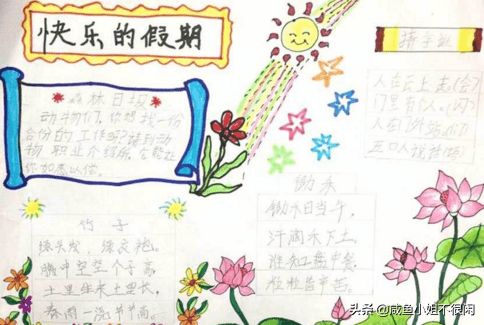 快乐的假期
猜字谜
森林日报
动物们，你想找一份
合份的工作吗？请到动
物职业介绍所，它能让
你如愿以偿。
人在云上走（会）
门里有人（闪）
人在门
五口人说话
竹子
绿头发，绿衣袍。
腹中空空个子高，
土里生来土里长，
春雨一浇节节高。
锄禾
锄禾日当午，
汗滴禾下土。
谁知盘中餐，
粒粒皆辛苦。
头条@咸鱼小姐不很闲